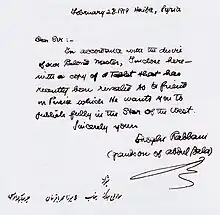 February 28. 1919 Haifa, Syria
Dear Sir:-
In accordance with the desire
of our Beloved Master, I enclose here-
with a copy of a Tablet that has
recently been revealed to be friend
in Persia which He wants you to
publish fully in the Star of the West.
Sincerely yours
Shoghi Rabbani
(grandson of Abdul Baha)